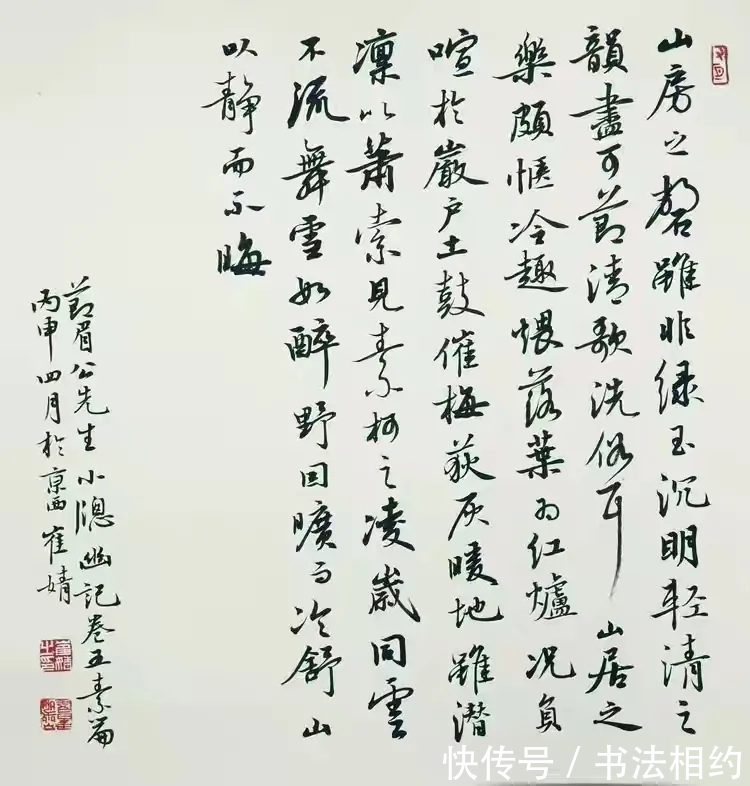 山房之磬雖非绿玉沉明轻清之
韻盡可節清歌洗俗耳山居之
樂頗惬冷趣煨落葉为红爐况負
喧於巖户土鼓催梅荻灰暖地雖潜
凛以蕭索見素柯之凌歲同雲
不流舞雪如醉野因曠而冷舒山
以静而不晦
節眉公先生小牕幽記卷五素篇
丙申四月於京西崔婧
快传号 / 书法相约